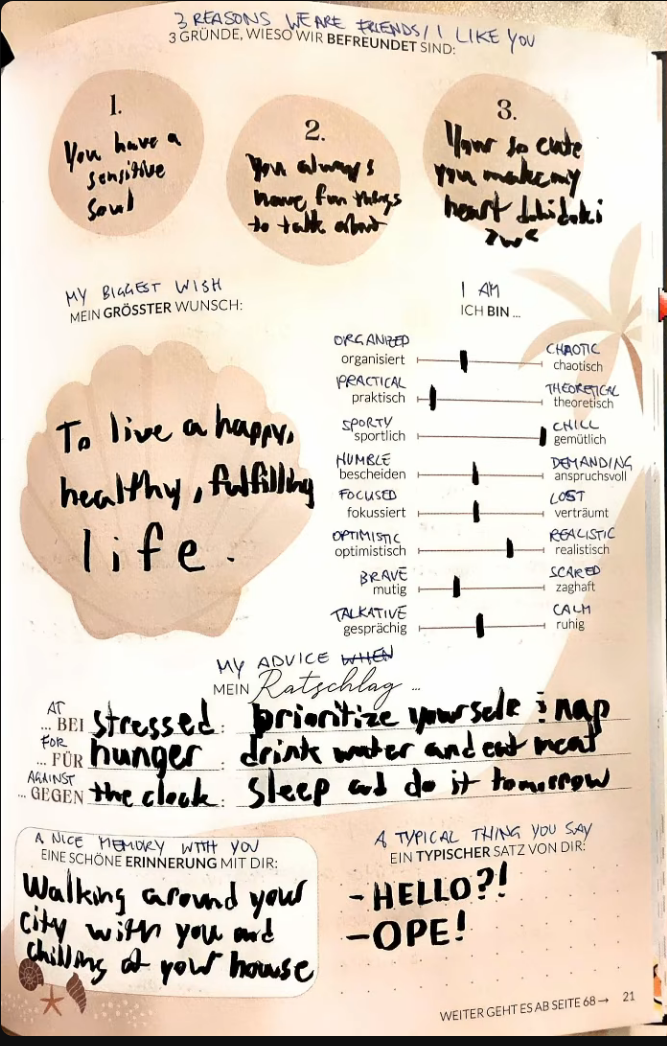 3 REASONS WE ARE FRIENDS / I LIKE YOU
3 GRÜNDE, WIESO WIR BEFREUNDET SIND:
1.
You have a
sensitive
soul
2.
You always
have fun things
to talk about
3.
Your so cute
you make my
heart dokidoki
>w<
MY BIGGEST WISH
MEIN GRÖSSTER WUNSCH:
To live a happy,
healthy, fulfilling
life.
I AM
ICH BIN ...
ORGANIZED CHAOTIC
organisiert chaotisch
PRACTICAL THEORETICAL
praktisch theoretisch
SPORTY CHILL
sportlich gemütlich
HUMBLE DEMANDING
bescheiden anspruchsvoll
FOCUSED LOST
fokussiert verträumt
OPTIMISTIC REALISTIC
optimistisch realistisch
BRAVE SCARED
mutig zaghaft
TALKATIVE CALM
gesprächig ruhig
MY ADVICE WHEN
MEIN Ratschlag ...
AT
... BEI stressed : prioritize yourself & nap
FOR
... FÜR hunger : drink water and eat meat
AGAINST
... GEGEN the clock : sleep and do it tomorrow
A NICE MEMORY WITH YOU
EINE SCHÖNE ERINNERUNG MIT DIR:
Walking around your
city with you and
chilling at your house
A TYPICAL THING YOU SAY
EIN TYPISCHER SATZ VON DIR:
- HELLO?!
- OPE!
WEITER GEHT ES AB SEITE 68 → 21